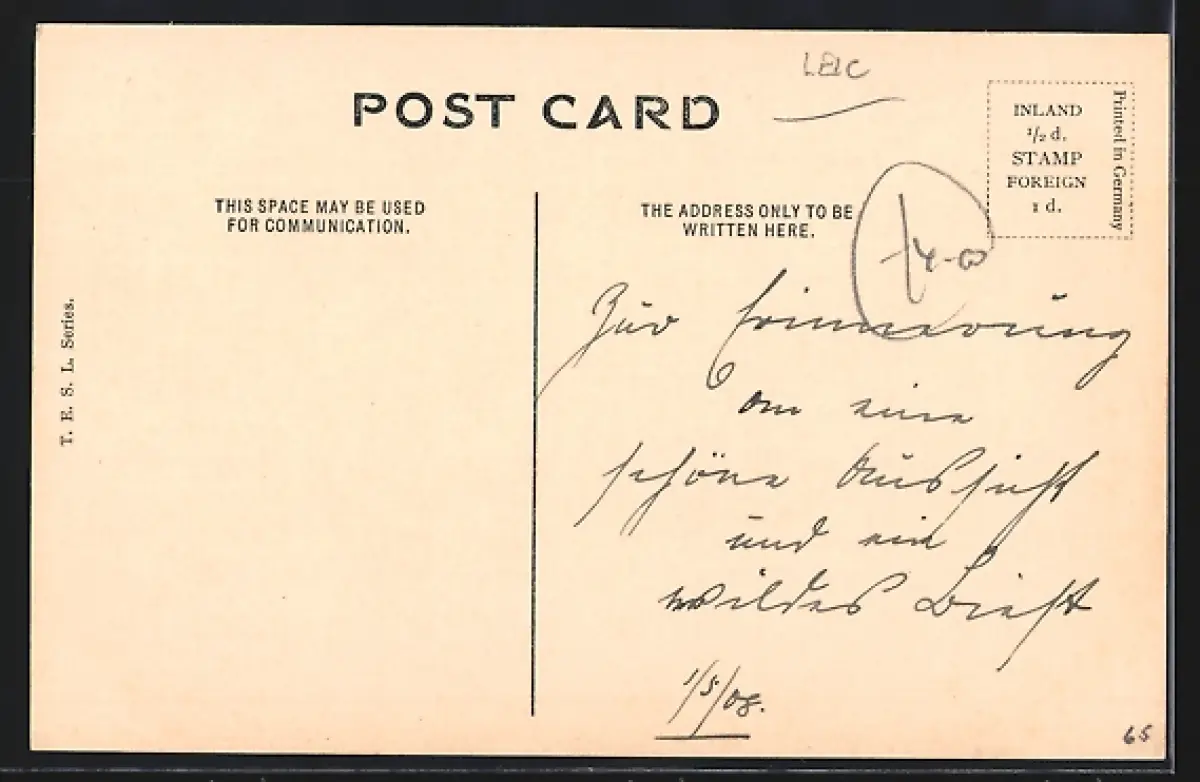 LEIC
POST CARD
INLAND
½ d.
STAMP
FOREIGN
1 d.
Printed in Germany
THIS SPACE MAY BE USED
FOR COMMUNICATION.
THE ADDRESS ONLY TO BE
WRITTEN HERE.
T. E. S. L. Series.
Zur Erinnerung
an eine
schöne Aussicht
und ein
wildes Biest
1/5/08.
65